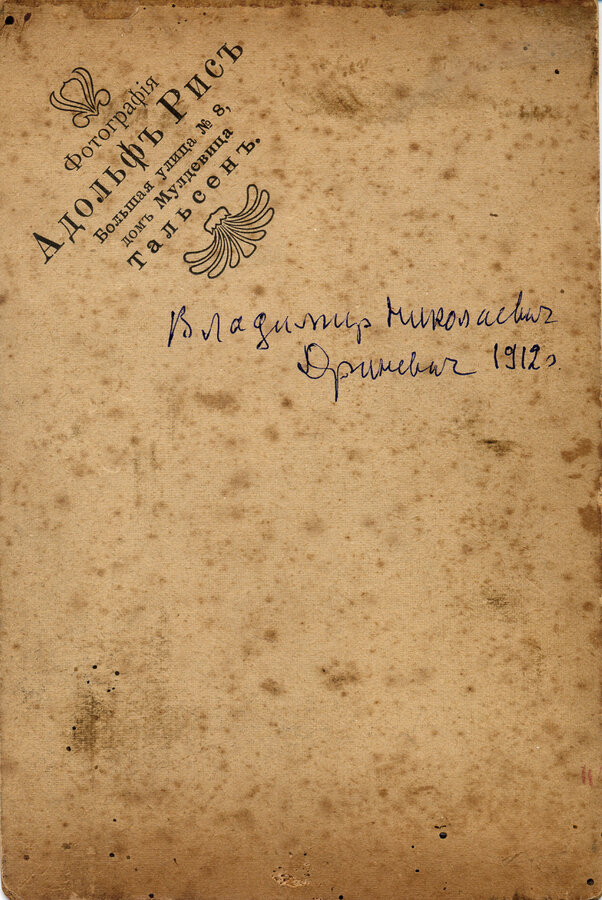 Фотографія
Адольфъ Рисъ
Большая улица № 8,
домъ Мулдевица
Тальсенъ.
Владимир Николаевич
Дриневич 1912г.